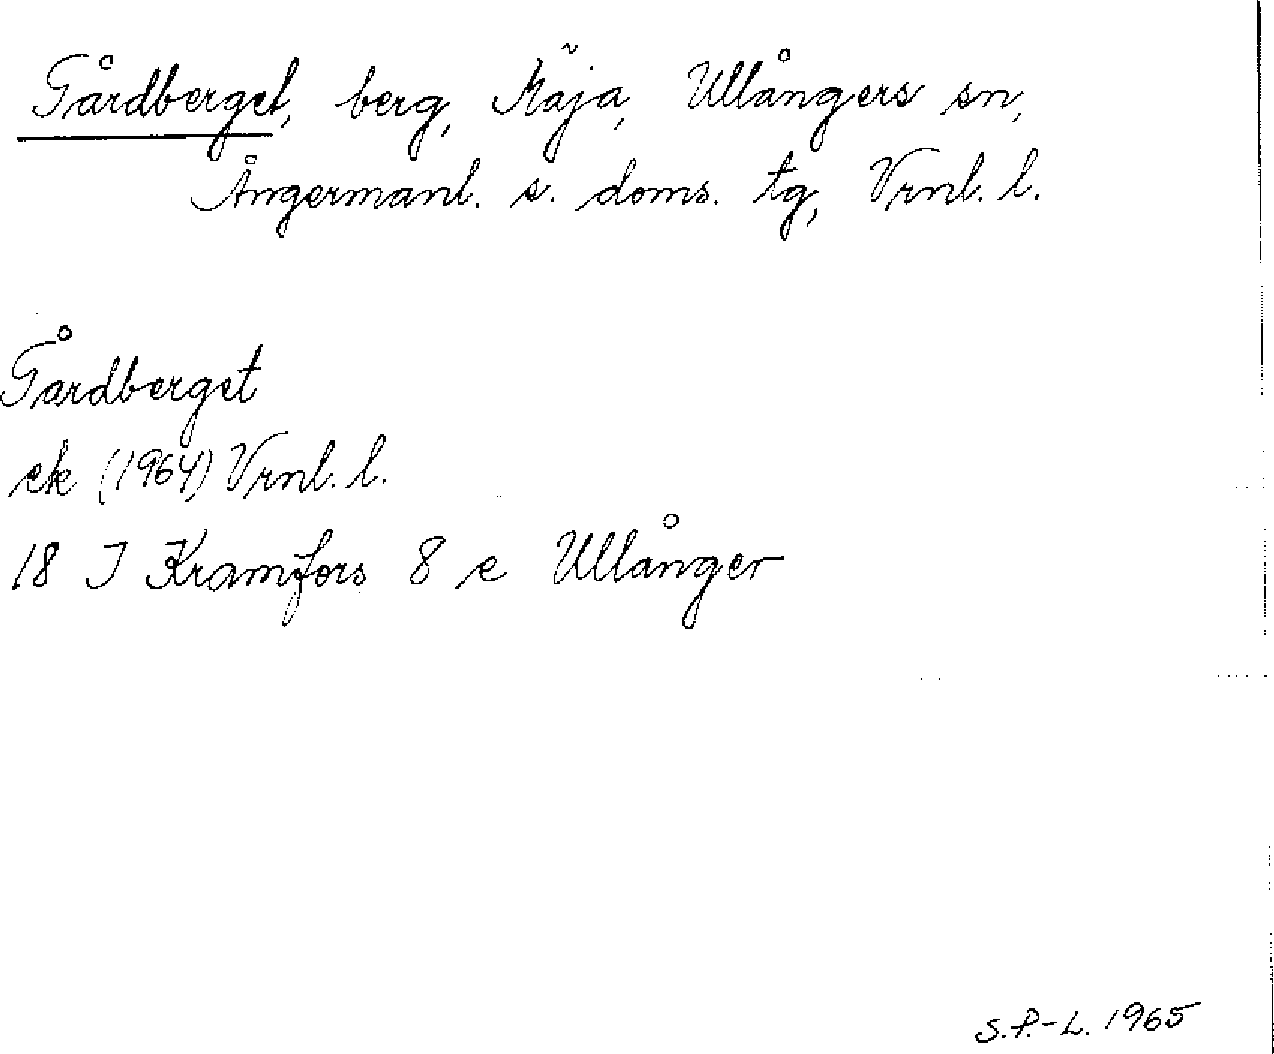 Gårdberget, berg, Mäja, Ullångers sn,
Ångermanl. s. doms. tg, Vrnl. l.
Gårdberget
ek (1964) Vrnl. l.
18 I Kramfors 8 e Ullånger
S.P.-L. 1965